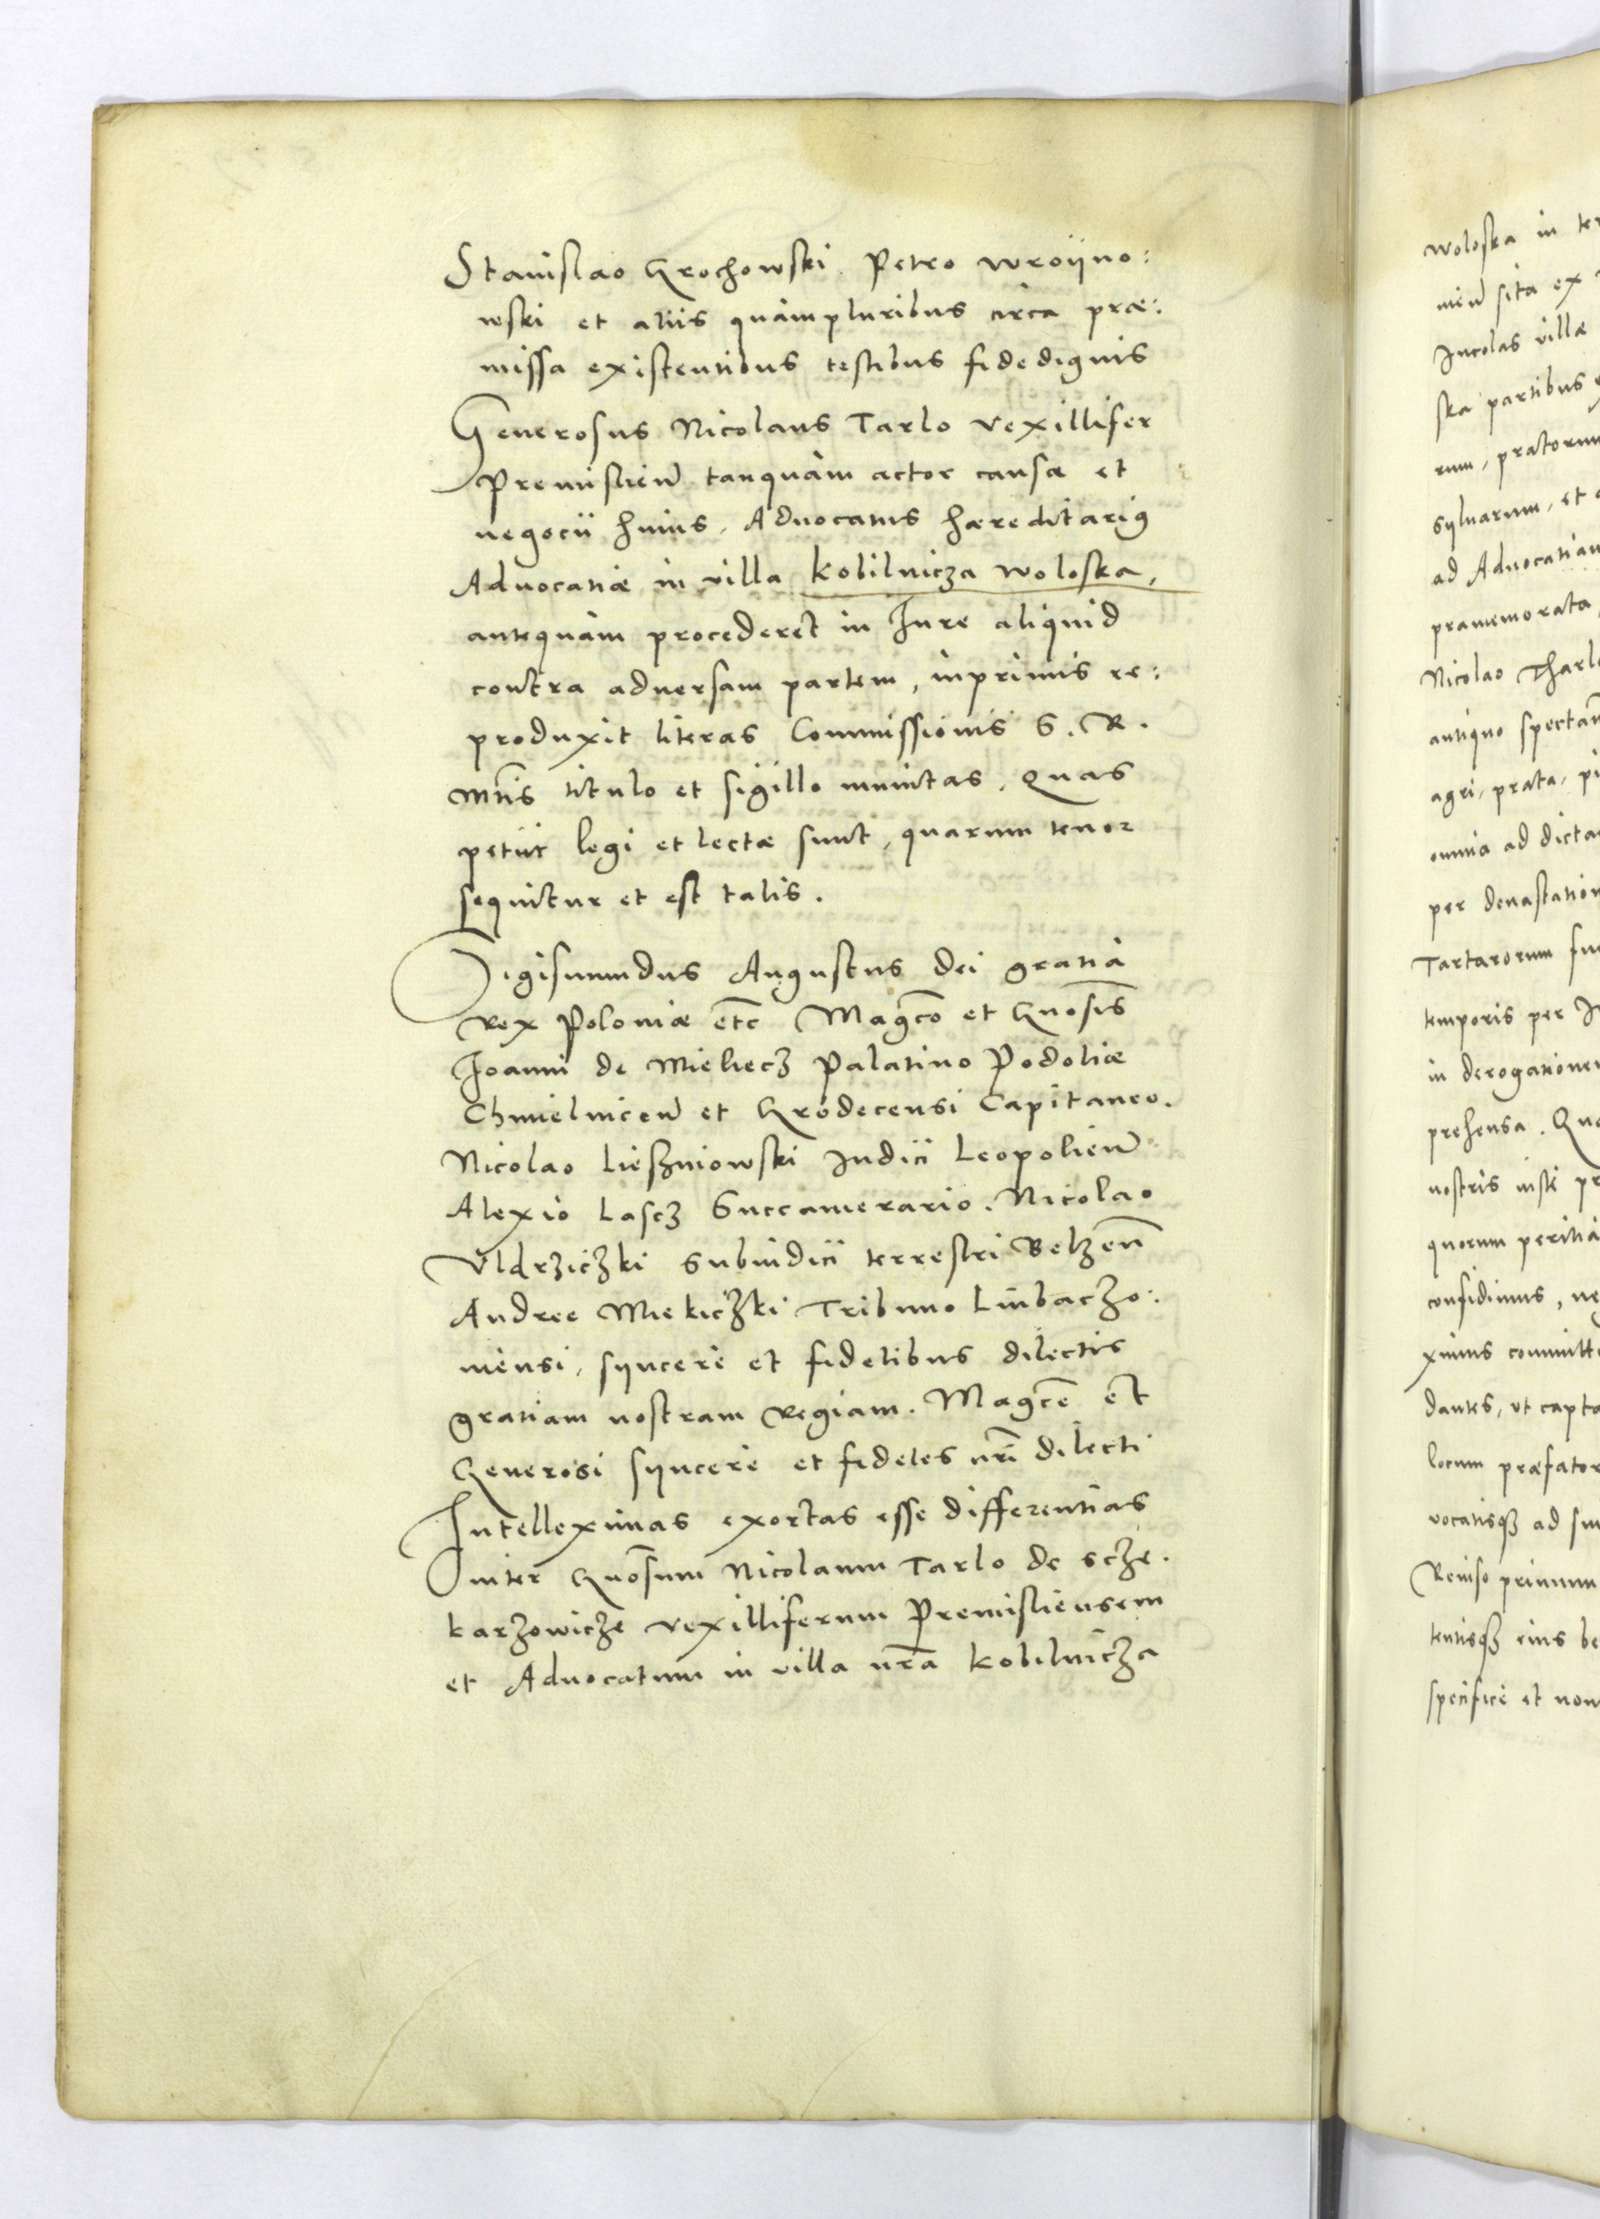 Stanislao Grochowski. Petro Wroijno:
wski et aliis quàmpluribus circa præ:
missa existentibus testibus fidedignis
Generosus Nicolaus Tarlo Vexillifer
Premislien̄ tanquàm actor causæ et
negocii huius. Aduocatus hæreditariꝯ
Aduocatiæ in villa Kobilnicza Woloska,
antequàm procederet in Jure aliquid
contra aduersam partem, inprimis re:
produxit literas Commissionis S. R.
Mtis̄ titulo et sigillo munitas. Quas
petiit legi et lectæ sunt, quarum tenor
sequitur et est talis.
Sigismundus Augustus dei gratia
Rex Poloniæ etc̄ Magc̄o et Gnosīs
Joanni de Mieliecz Palatino Podoliæ
Chmielnicen̄ et Grodecensi Capitaneo.
Nicolao Lieszniowski Judici Leopolien̄
Alexio Lascz Succamerario. Nicolao
Uldrziczki Subiudici terrestri Belzen̄
Andree Miekiczki Tribuno Liubaczo:
uiensi, syncerè et fidelibus dilectis
gratiam nostram Regiam. Magc̄e et
Generosi syncerè et fideles nrī dilecti
Intelleximus exortas esse differentias
inter Gnōsum Nicolaum Tarlo de Scze.
karzowicze Vexilliferum Premisliensem
et Aduocatum in villa nrā Kobilnicza
Woloska in
nien̄ sita ex
Incolas villæ
ska partibus
rum, pratorum
syluarum, et
ad Aduocatiam
præmemorata,
Nicolao Tharl
antiquo spectan
agri, prata,
omnia ad dicta
per deuastation
Tartarorum
temporis per
in derogationem
prehensa.
nostris iuste
quorum peritia
confidimus,
ximus committ
dantes, vt capta
locum præfator
vocatisqꝫ ad
Reuiso primum
tentisqꝫ eius
specificè et non